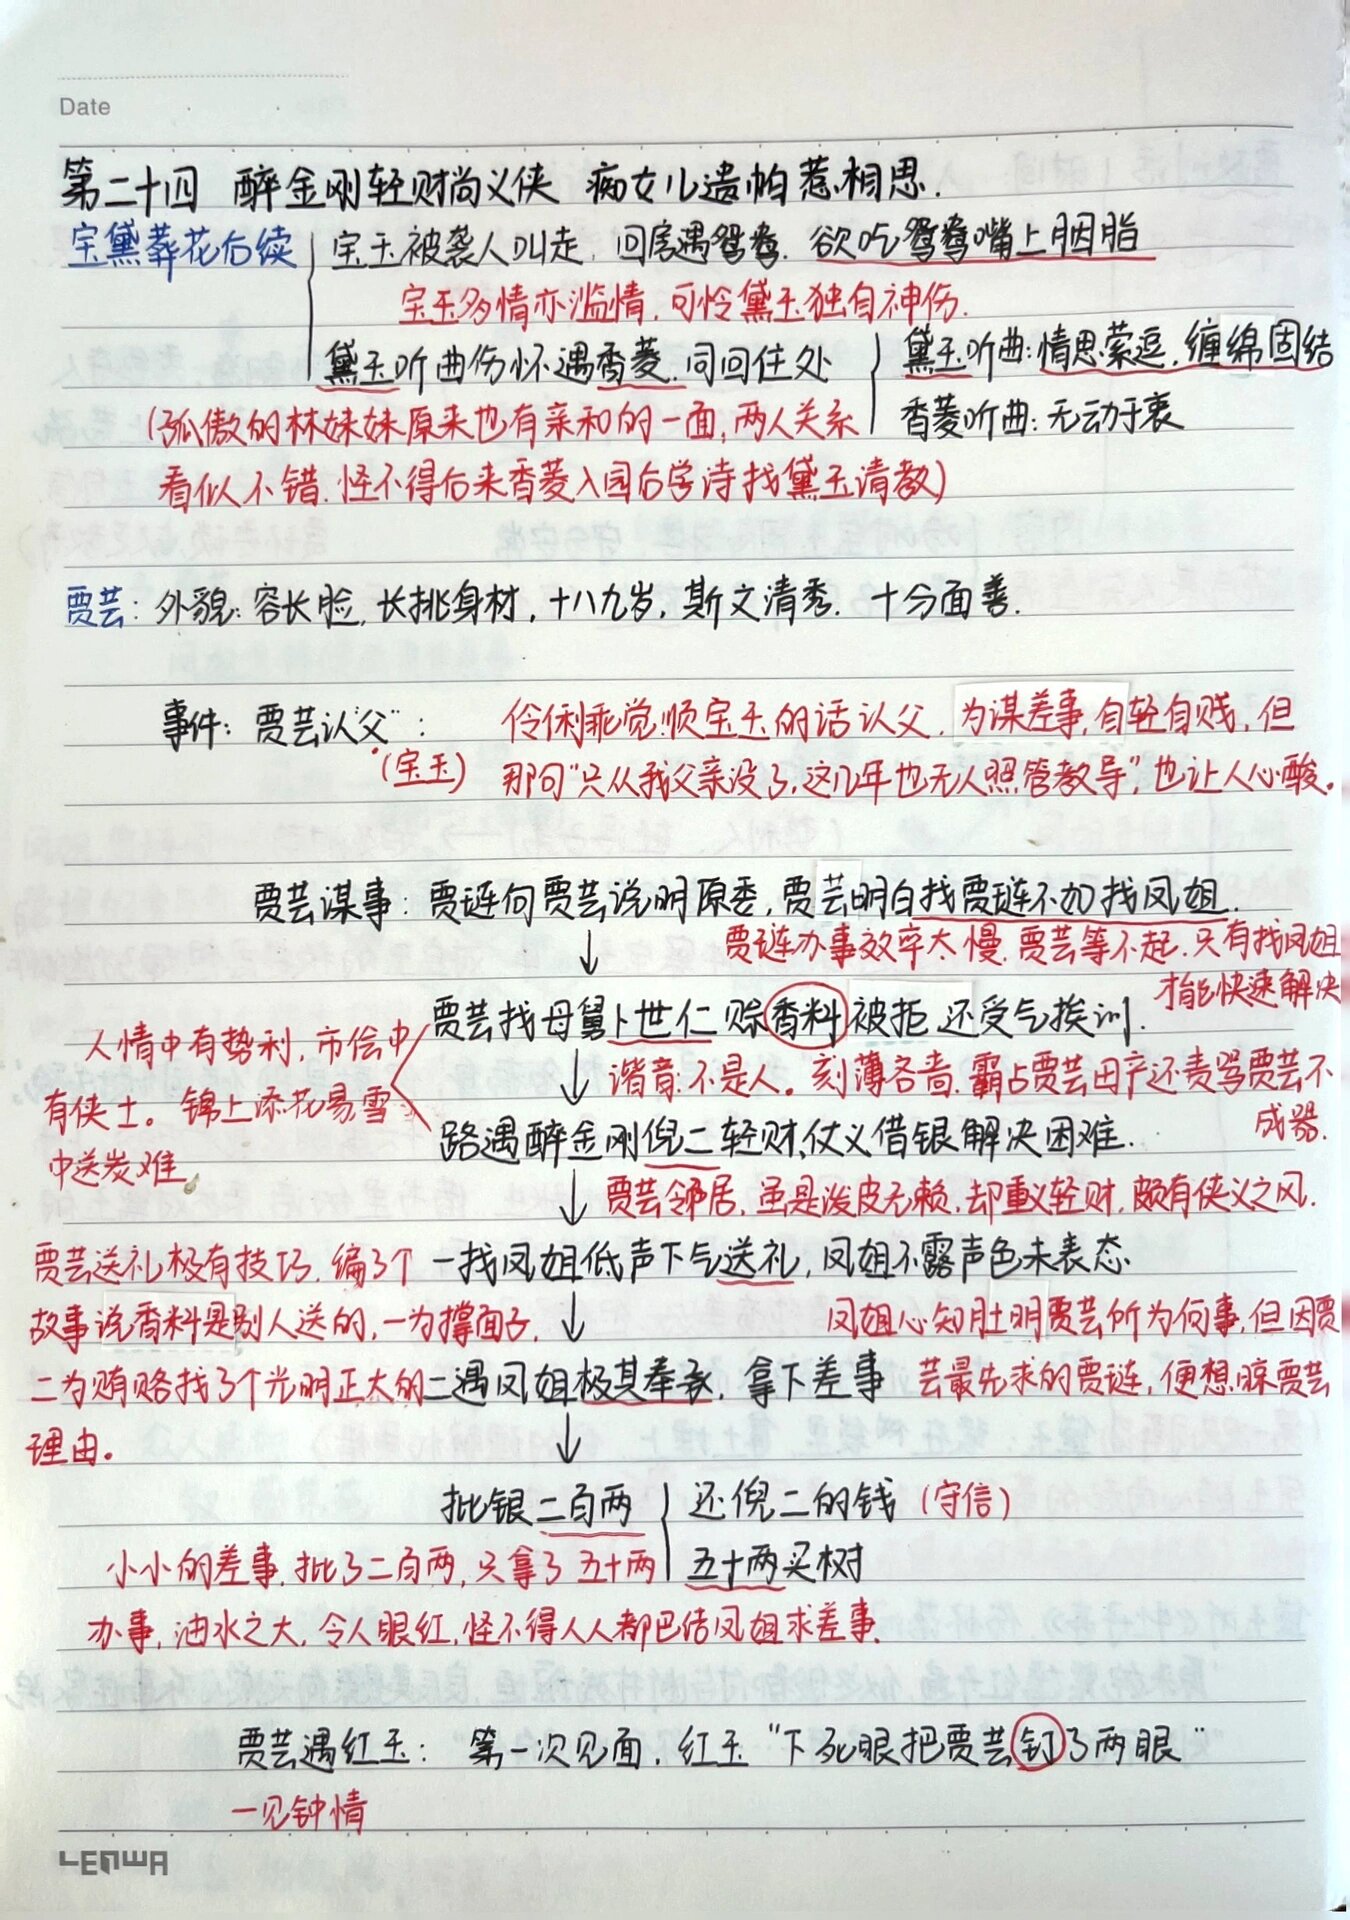 Date
第二十四 醉金刚轻财尚义侠 痴女儿遗帕惹相思.
宝黛葬花后续
宝玉被袭人叫走,回房遇鸳鸯.欲吃鸳鸯嘴上胭脂
宝玉多情亦滥情.可怜黛玉独自神伤.
黛玉听曲伤怀遇香菱.同回住处
黛玉听曲:情思萦逗.缠绵固结
香菱听曲:无动于衷
(孤傲的林妹妹原来也有亲和的一面,两人关系
看似不错.怪不得后来香菱入园后学诗找黛玉请教)
贾芸:外貌:容长脸,长挑身材,十八九岁,斯文清秀.十分面善.
事件:贾芸认“父”:
(宝玉)
伶俐乖觉.顺宝玉的话认父.为谋差事,自轻自贱,但
那句“只从我父亲没了,这几年也无人照管教导”,也让人心酸。
贾芸谋事:贾琏向贾芸说明原委,贾芸明白找贾琏不如找凤姐.
贾琏办事效率太慢.贾芸等不起.只有找凤姐
才能快速解决
贾芸找母舅卜世仁赊香料被拒还受气挨训.
谐音:不是人。刻薄吝啬.霸占贾芸田产还责骂贾芸不
成器.
人情中有势利,市侩中
有侠士。锦上添花易雪
中送炭难。
路遇醉金刚倪二轻财仗义借银解决困难.
贾芸邻居,虽是泼皮无赖,却重义轻财,颇有侠义之风.
一找凤姐低声下气送礼,凤姐不露声色未表态
贾芸送礼极有技巧.编了个
故事说香料是别人送的,一为撑面子,
二为贿赂找了个光明正大的
理由。
凤姐心知肚明贾芸所为何事,但因贾
芸最先求的贾琏,便想晾贾芸
二遇凤姐极其奉承,拿下差事
批银二百两
还倪二的钱(守信)
五十两买树
小小的差事.批了二百两,只拿了五十两
办事,油水之大,令人眼红,怪不得人人都巴结凤姐求差事.
贾芸遇红玉:第一次见面,红玉“下死眼把贾芸钉了两眼”
一见钟情
LENWA